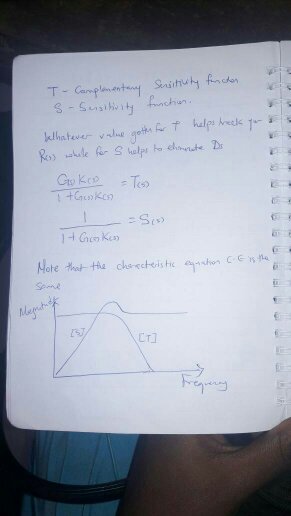 T - Complementary Sensitivity function
S - Sensitivity function.
Whatever value for T helps track
R(s) while for S helps to eliminate Ds
G(s)K(s) / 1+G(s)K(s) = T(s)
1 / 1+G(s)K(s) = S(s)
Note that the characteristic equation C.E is the
same
Magnitude
[S]
[T]
Frequency